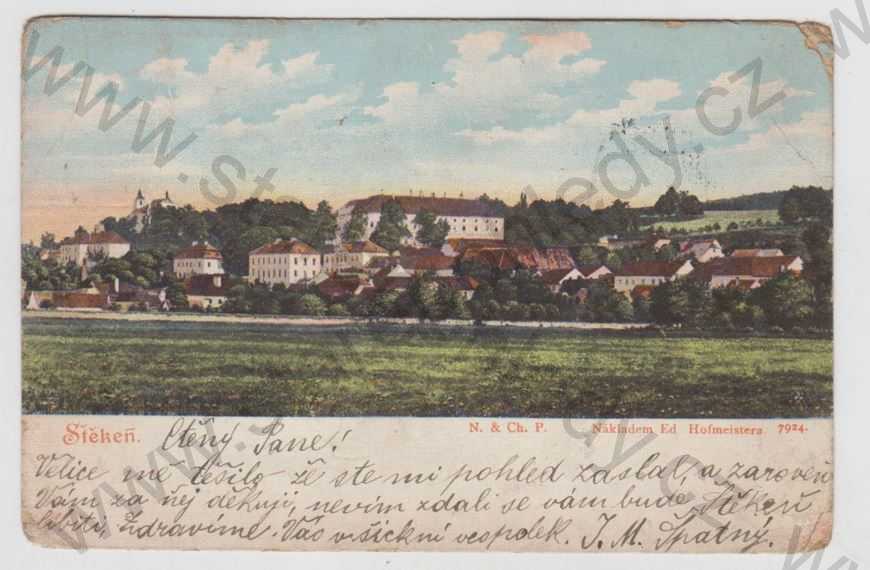 Štěkeň. Ctěný Pane!
N. & Ch. P. Nákladem Ed Hofmeistera 7924.
Velice mě těšilo že ste mi pohled zaslal, a zároveň
Vám za něj děkuji, nevím zdali se vám bude Štěkeň
líbiti. Zdravíme Vás všickni vespolek. J. M. Špatný.